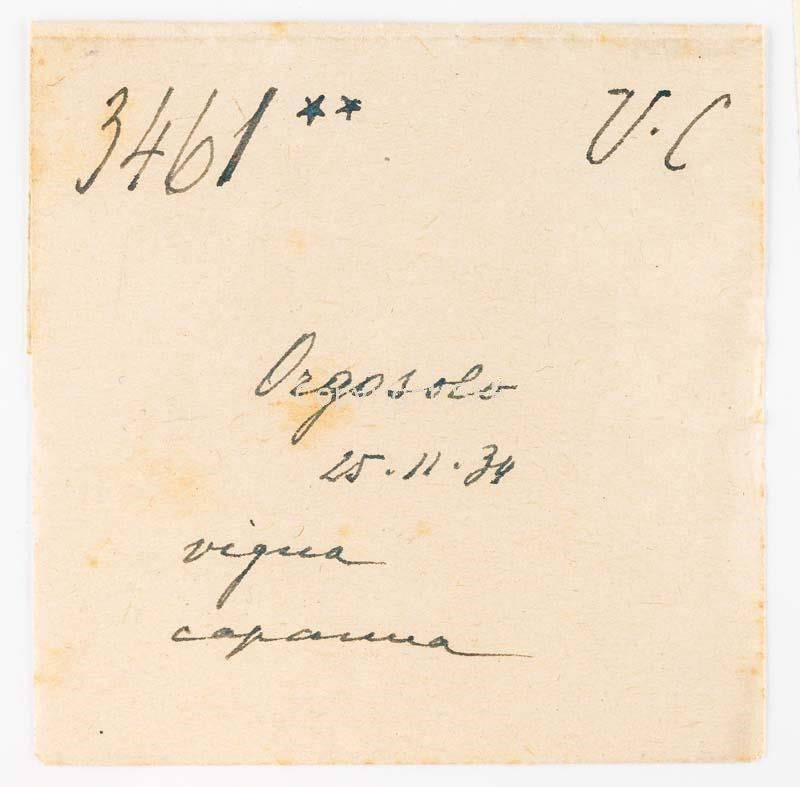 3461 ** V. C
Orgosolo
25. 11. 34
vigna
capanna